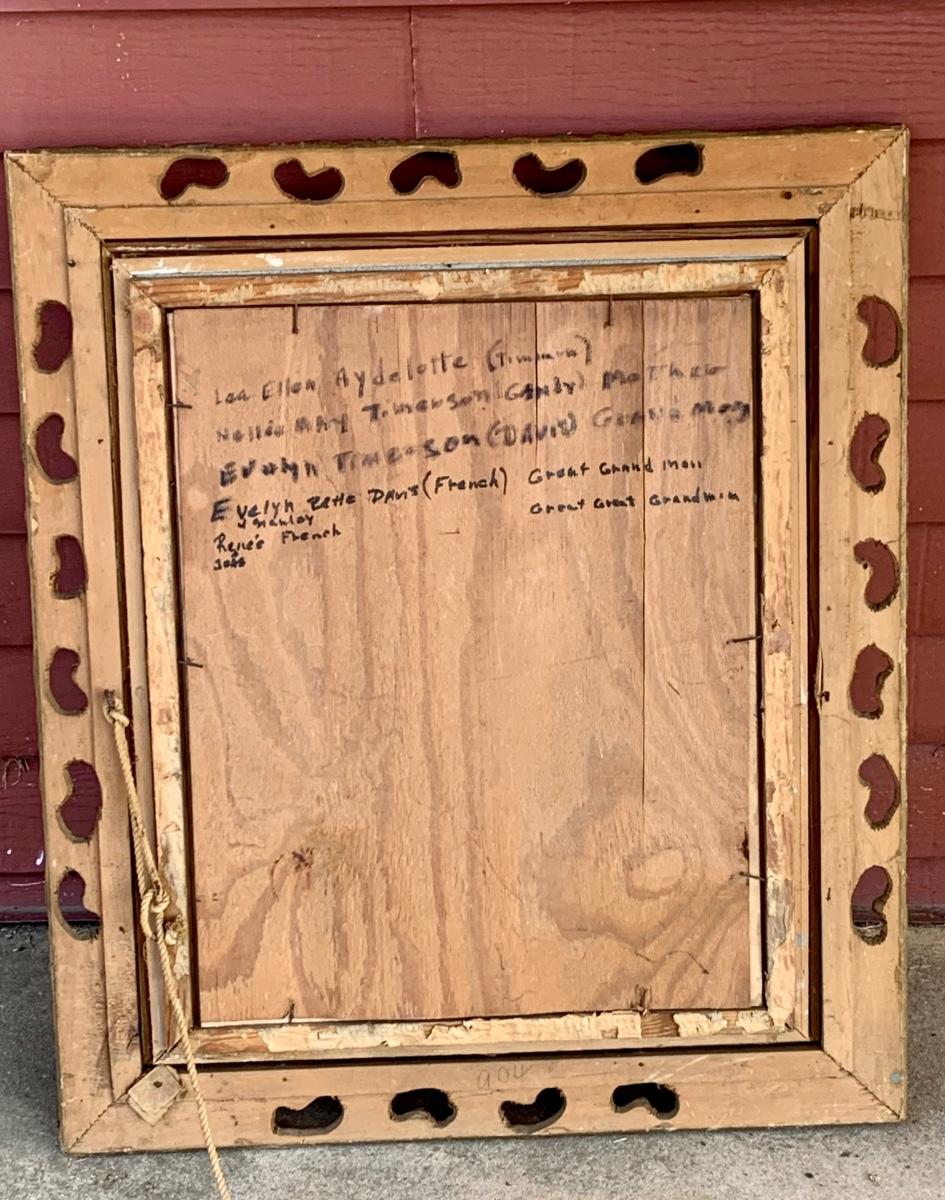 Lea Ellen Aydelotte
Nellie MAY Timerson (Ganly) Mother
Evelyn Timerson (DAVIS) Grand Mom
Evelyn Bette DAVIS (French) Great Grand Mom
& Stanley Great Great Grandmom
Reneé French
904